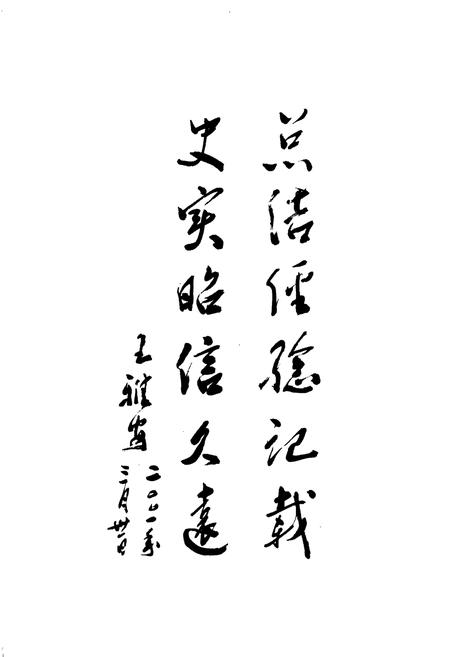 总结经验记载
史实昭信久远
王雅安
二〇〇一年
三月卅一日